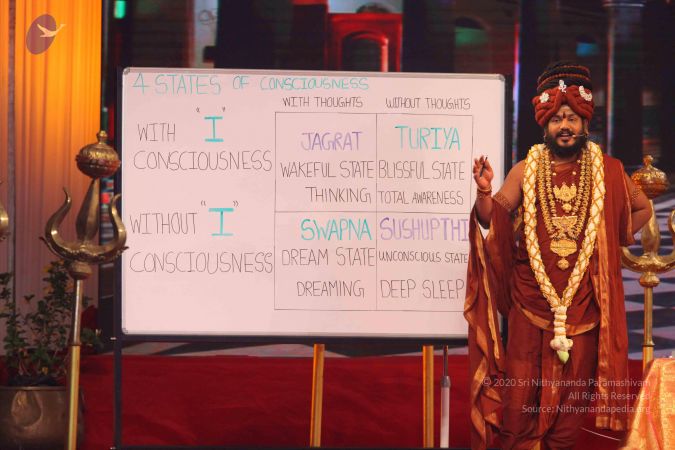 4 STATES OF CONSCIOUSNESS
WITH THOUGHTS WITHOUT THOUGHTS
WITH "I" CONSCIOUSNESS
JAGRAT
WAKEFUL STATE
THINKING
TURIYA
BLISSFUL STATE
TOTAL AWARENESS
WITHOUT "I" CONSCIOUSNESS
SWAPNA
DREAM STATE
DREAMING
SUSHUPTHI
UNCONSCIOUS STATE
DEEP SLEEP
© 2020 Sri Nithyananda Paramashivam
All Rights Reserved
Source: Nithyanandapedia.org